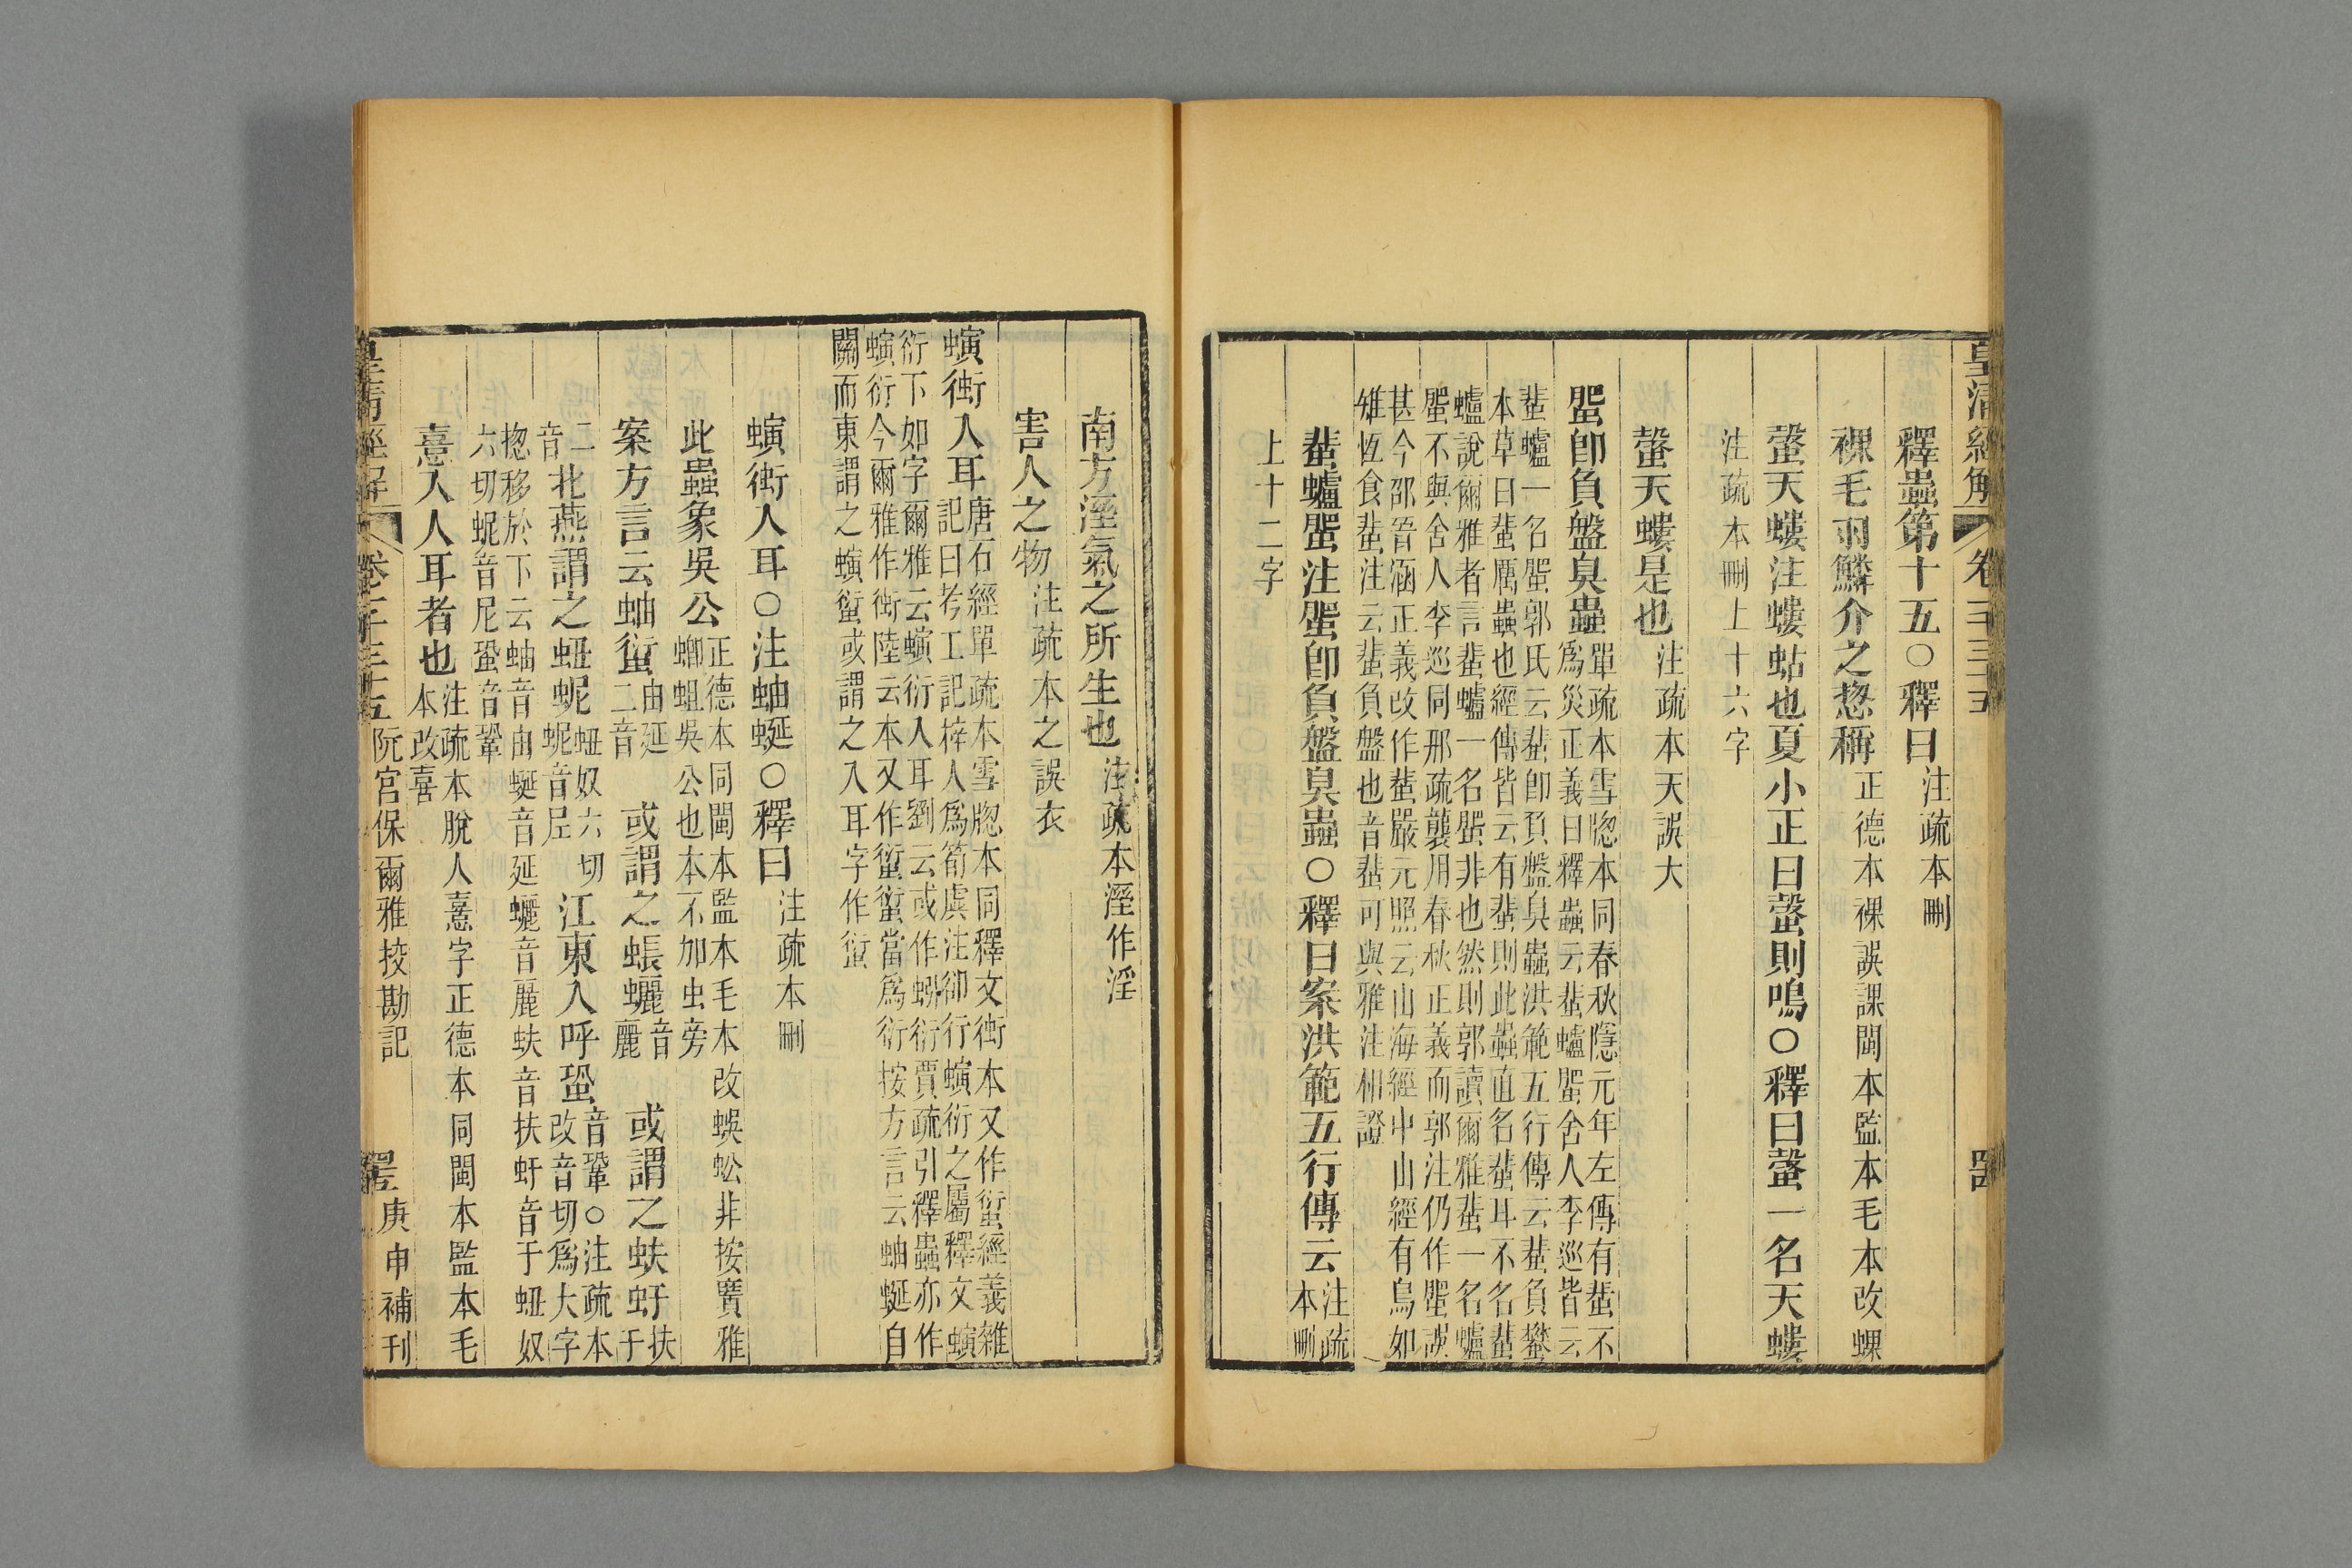 皇清經解 卷一千三十五
釋蟲第十五○釋曰注疏本刪
裸毛羽鱗介之惣稱正德本裸誤課閩本監本毛本改蜾
蛬天螻注螻蛄也夏小正曰蛬則鳴○釋曰蛬一名天螻
注疏本刪上十六字
蛬天螻是也注疏本天誤大
蜰卽負盤臭蟲單疏本雪牕本同春秋隱元年左傳有蜚不
爲災正義曰釋蟲云蜚蠦蜰舍人李巡皆云
蜚蠦一名蜰郭氏云蜚卽負盤臭蟲洪範五行傳云蜚負蠜
本草曰蜚厲蟲也經傳皆云有蜚則此蟲直名蜚耳不名蜚
蠦說爾雅者言蜚蠦一名蜰非也然則郭讀爾雅蜚一名蠦
蜰不與舍人李巡同邢疏襲用春秋正義而郭注仍作蜰誤
甚今邵晉涵正義改作蜚嚴元照云山海經中山經有鳥如
雉恆食蜚注云蜚負盤也音蜚可與雅注相證
蜚蠦蜰注蜰卽負盤臭蟲○釋曰案洪範五行傳云注疏
本刪
上十二字
南方溼氣之所生也注疏本溼作淫
害人之物注疏本之誤衣
螾衝入耳唐石經單疏本雪牕本同釋文衝本又作蚃經義雜
記曰考工記梓人爲筍虡注卻行螾衍之屬釋文螾
衍下如字爾雅云螾衍入耳劉云或作蚓衍賈疏引釋蟲亦作
螾衍今爾雅作衝陸云本又作蚃蚃當爲衍按方言云蚰蜒自
關而東謂之螾蚃或謂之入耳字作蚃
螾衝入耳○注蚰蜒○釋曰注疏本刪
此蟲象吳公正德本同閩本監本毛本改蜈蚣非按廣雅
蝍蛆吳公也本不加虫旁
案方言云蚰蚃由延二音 或謂之蜄蠷音麗 或謂之蚨虶扶于
二音北燕謂之蚭蚭奴六切蚭音尼 江東入呼蛩音鞏○注疏本
改音切爲大字
惣移於下云蚰音由蜒音延蠷音麗蚨音扶虶音于蚭奴
六切蚭音尼蛩音鞏
憙入人耳者也注疏本脫人憙字正德本同閩本監本毛
本改喜
皇清經解 卷一千三十五 阮宮保爾雅挍勘記 庚申補刊